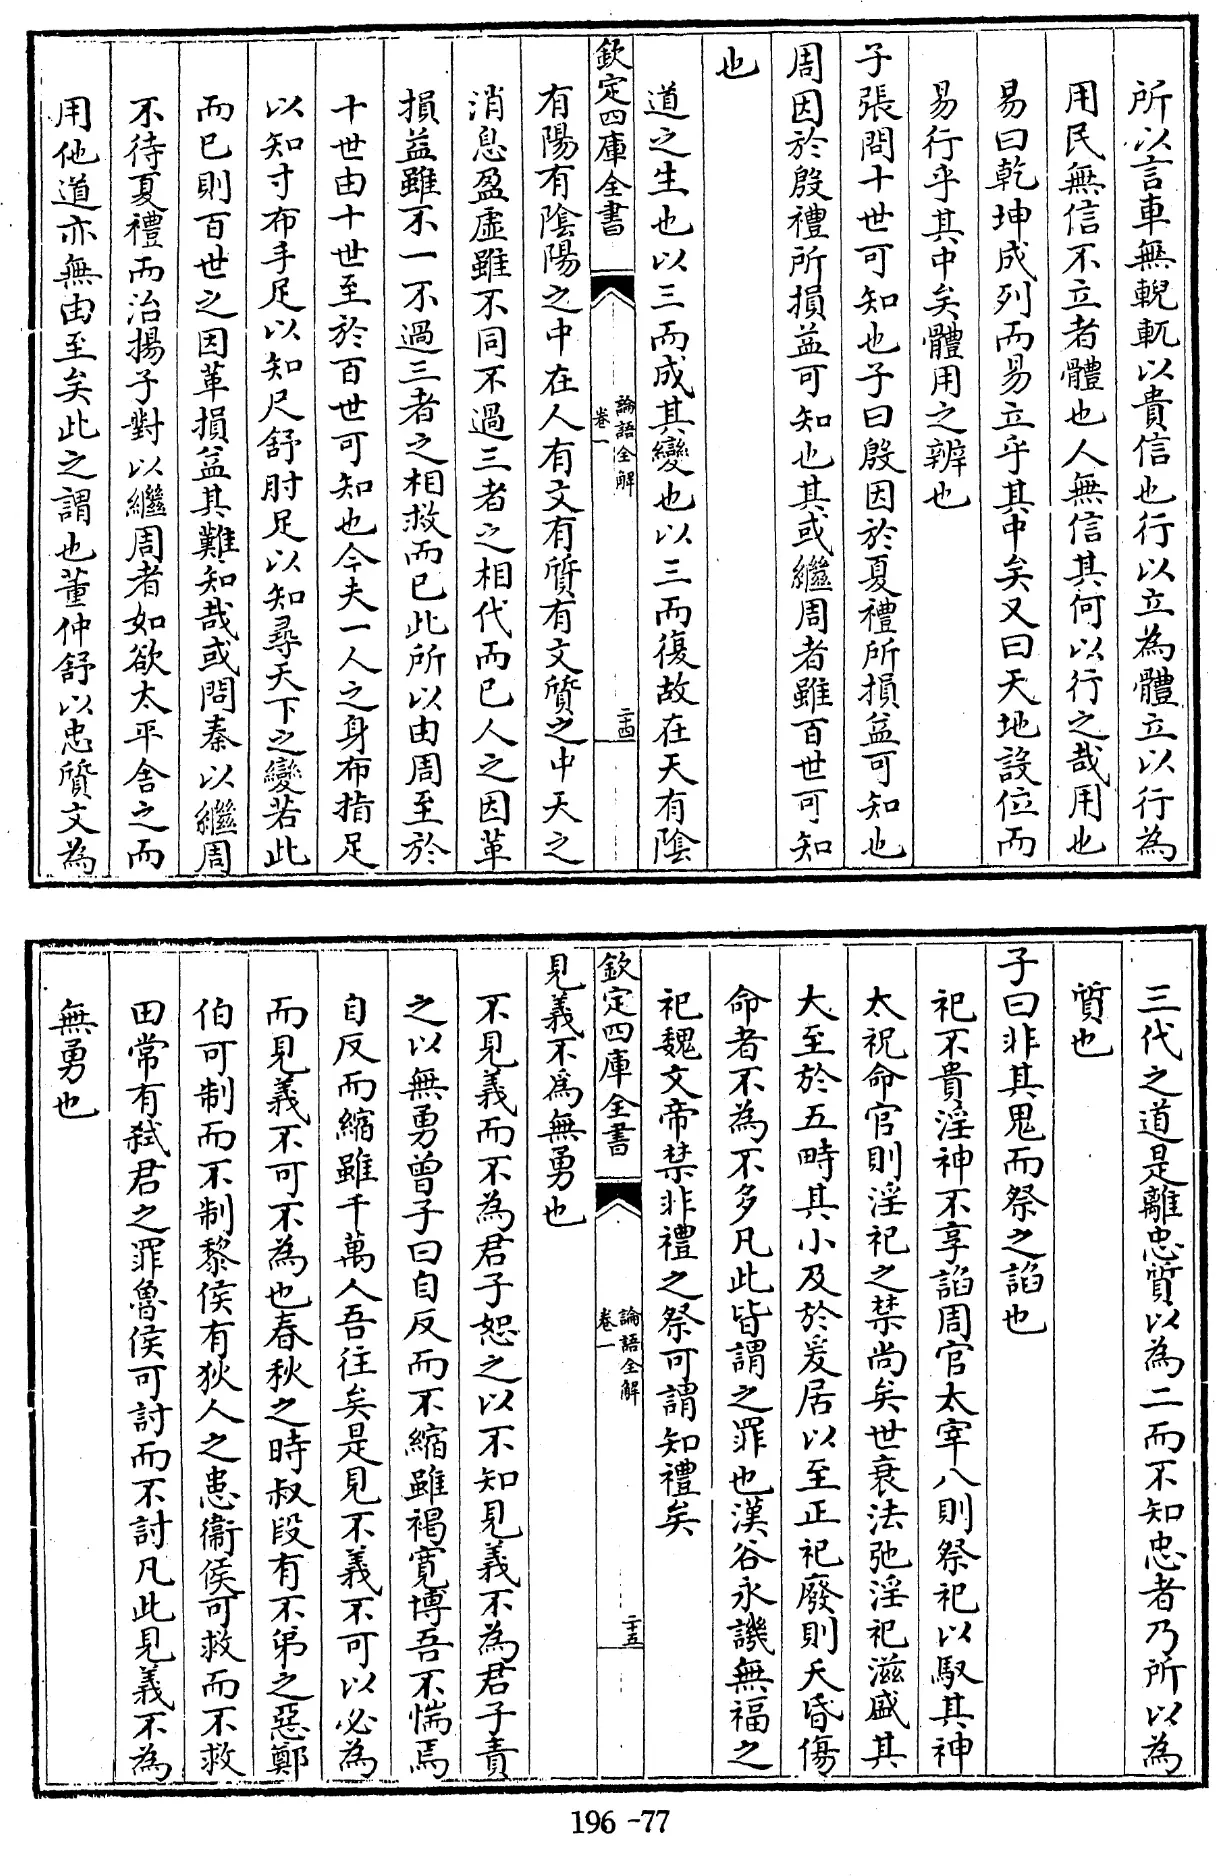 所以言車無輗軏以貴信也行以立為體立以行為
用民無信不立者體也人無信其何以行之哉用也
易曰乾坤成列而易立乎其中矣又曰天地設位而
易行乎其中矣體用之辨也
子張問十世可知也子曰殷因於夏禮所損益可知也
周因於殷禮所損益可知也其或繼周者雖百世可知
也
道之生也以三而成其變也以三而復故在天有陰
欽定四庫全書
論語全解
卷一
二十四
有陽有陰陽之中在人有文有質有文質之中天之
消息盈虛雖不同不過三者之相代而已人之因革
損益雖不一不過三者之相救而已此所以由周至於
十世由十世至於百世可知也今夫一人之身布指足
以知寸布手足以知尺舒肘足以知尋天下之變若此
而已則百世之因革損益其難知哉或問秦以繼周
不待夏禮而治揚子對以繼周者如欲太平舍之而
用他道亦無由至矣此之謂也董仲舒以忠質文為
三代之道是離忠質以為二而不知忠者乃所以為
質也
子曰非其鬼而祭之諂也
祀不貴淫神不享諂周官太宰八則祭祀以馭其神
太祝命官則淫祀之禁尚矣世衰法弛淫祀滋盛其
大至於五畤其小及於爰居以至正祀廢則夭昏傷
命者不為不多凡此皆謂之罪也漢谷永譏無福之
祀魏文帝禁非禮之祭可謂知禮矣
欽定四庫全書
論語全解
卷一
二十五
見義不爲無勇也
不見義而不為君子恕之以不知見義不為君子責
之以無勇曾子曰自反而不縮雖褐寛博吾不惴焉
自反而縮雖千萬人吾往矣是見不義不可以必為
而見義不可不為也春秋之時叔段有不弟之惡鄭
伯可制而不制黎侯有狄人之患衞侯可救而不救
田常有弑君之罪魯侯可討而不討凡此見義不為
無勇也
196-77